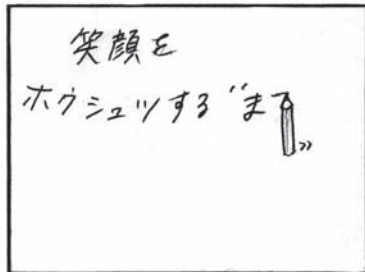 笑顔を
ホウシュツする“まて”